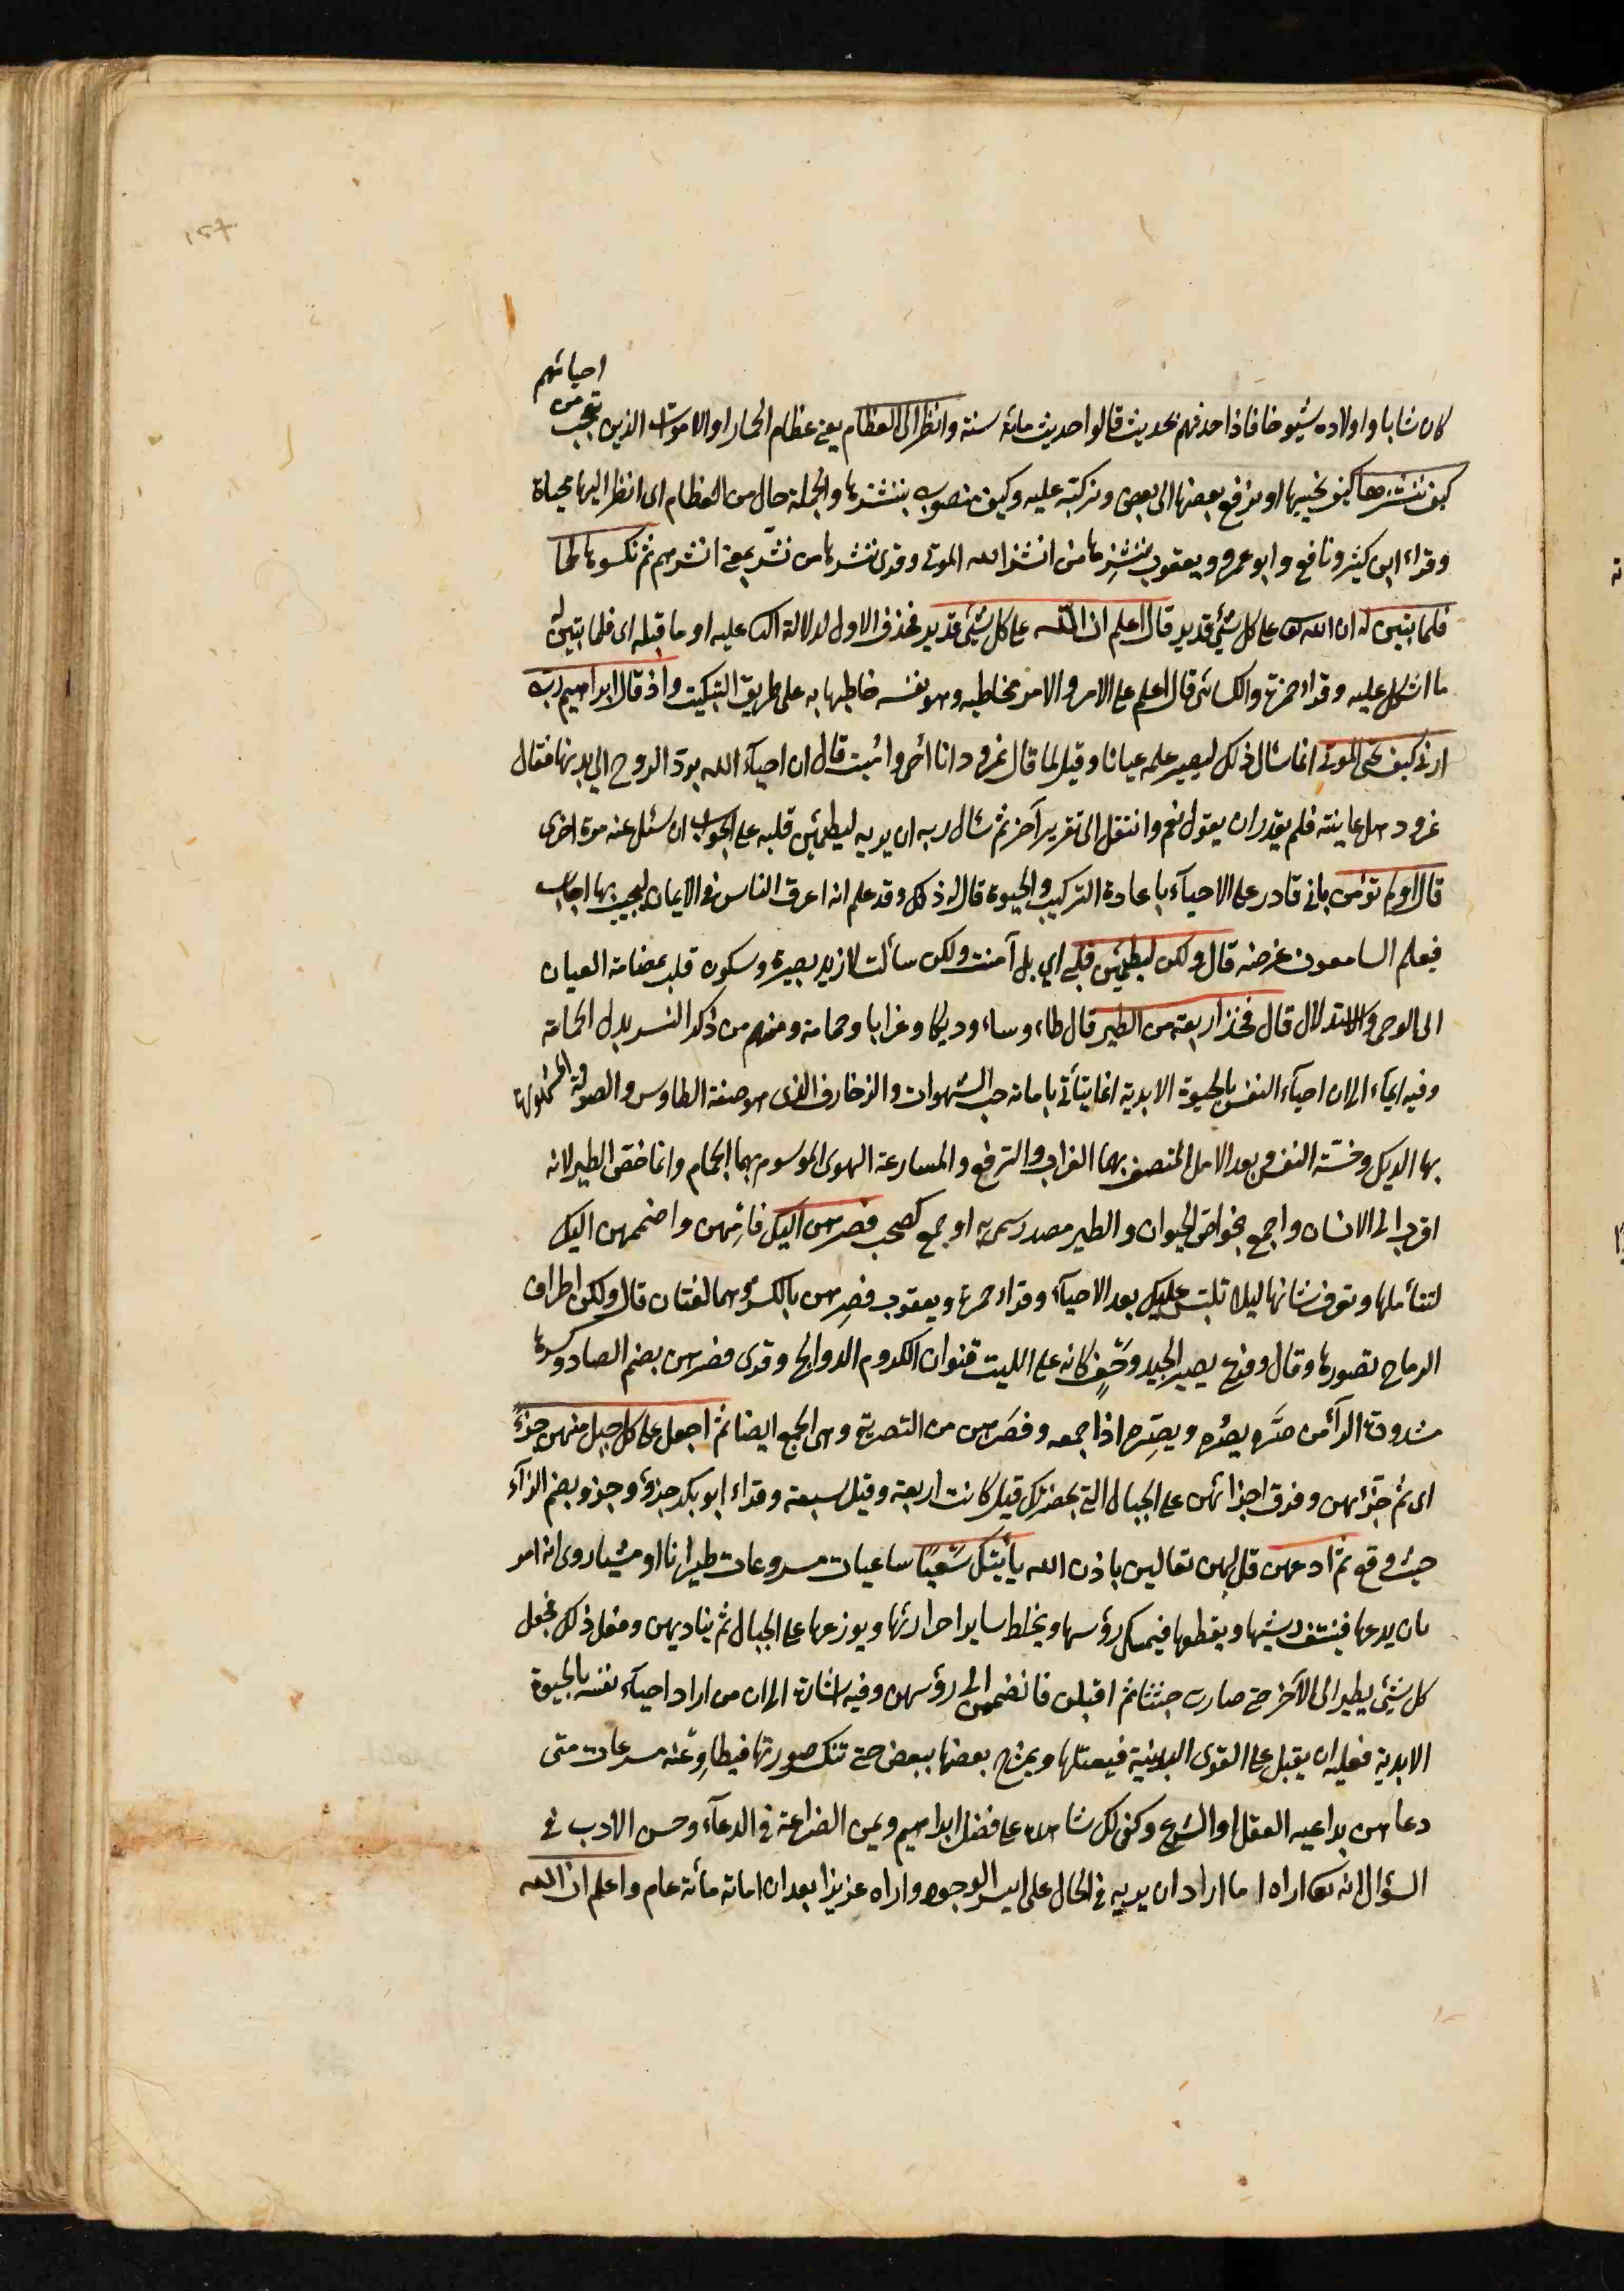 كان شابا واولاده شيوخا فاذا حدثهم بحديث قالوا حديث مائة سنة وانظر الى العظام يعنى عظام الحمار او الاموات الذين تعجب من احيائهم
كيف ننشزها كيف نحييها او نرفع بعضها الى بعض ونركبه عليه وكيف منصوب بننشزها والجملة حال من العظام اى انظر اليها محياة
وقراء ابن كثير ونافع وابو عمرو ويعقوب ننشرها من انشر الله الموتى وقرئ ننشرها من نشر بمعنى انشرهم ثم نكسوها لحما
فلما تبين له ان الله تعا على كل شيئ قدير قال اعلم ان الله على كل شيئ قدير فحذف الاول لدلالة الثانى عليه او ما قبله اى فلما تبين له
ما اشكل عليه وقراء حمزة والكسائى قال اعلم على الامر والامر مخاطبه وهو نفسه خاطبها به على طريق التبكيت واذ قال ابراهيم رب
ارنى كيف تحى الموتى انما سال ذلك ليصير علمه عيانا وقيل لما قال نمرود انا احى واميت قال ان احياء الله برد الروح الى بدنها فقال
نمرود هل عاينته فلم يقدر ان يقول نعم وانتقل الى تقرير آخر ثم سال ربه ان يريه ليطمئن قلبه على الجواب ان سئل عنه مرة اخرى
قال اولم تؤمن بانى قادر على الاحياء باعادة التركيب والحيوة قال له ذلك وقد علم انه اعرق الناس فى الايمان ليجيب بما اجاب
فيعلم السامعون غرضه قال ولكن ليطمئن قلبى اي بل آمنت ولكن سألت لازيد بصيرة وسكون قلب بمضامة العيان
الى الوحى والاستدلال قال فخذ اربعة من الطير قال طاء وسا وديكا وغرابا وحمامة ومنهم من ذكر النسر بدل الحمامة
وفيه ايماء الى ان احياء النفس بالحيوة الابدية انما يتأتى باماتة حب الشهوات والزخارف الذى هو صفة الطاوس والصولة المشهور
بها الديك وخسة النفس وبعد الامل المتصف بهما الغراب والترفع والمسارعة الهوى الموسوم بهما الحمام وانما خص الطير لانه
اقرب الى الانسان واجمع بخواص الحيوان والطير مصدر سمى به او جمع كصحب فصرهن اليك فامِلهن واضممهن اليك
لتتأملها وتعرف شانها ليلا تلتبس عليك بعد الاحياء وقراء حمزة ويعقوب فصِرهن بالكسر وهما لغتان قال ولكن اطراف
الرماح تصورها وقال وفرع يصير الجيد وحف كانه على الليت قنوان الكروم الدوالح وقرئ فصرهن بضم الصاد وكسرها
مشدودة الرآ من صَرّه يصُرّه ويصِرّه اذا جمعه وفصَرّهن من التصرية وهى الجمع ايضا ثم اجعل على كل جبل منهن جزءً
اى ثم جزّئهن وفرق اجزائهن على الجبال التى بحضرتك قيل كانت اربعة وقيل سبعة وقراء ابو بكر جزؤ وجزو بضم الزآء
حيث وقع ثم ادعهن قل لهن تعالين باذن الله يأتينك سَعيًا ساعيات مسرعات طيرانا او مشيا روى انه امر
بان يذبحها فينتف ريشها ويقطعها فيمسك رؤسها ويخلط ساير اجزائها ويوزعها على الجبال ثم يناديهن وفعل ذلك فجعل
كل شيئ يطير الى الآخر حتى صارت جثثا ثم اقبلن فانضممن الى رؤسهن وفيه اشارة الى ان من اراد احياء نفسه بالحيوة
الابدية فعليه ان يقبل على القوى البدنية فيقتلها ويمزج بعضها ببعض حتى تنكسر صورتها فيطاوِعنه مسرعات متى
دعاهن بداعيه العقل او الشرع وكفى لك شاهدا على فضل ابراهيم ويمن الضراعة فى الدعآء وحسن الادب فى
السؤال انه تعا اراه ما اراد ان يريه فى الحال على ايسر الوجوه واراه عزيزا بعد ان اماته مائة عام واعلم ان الله